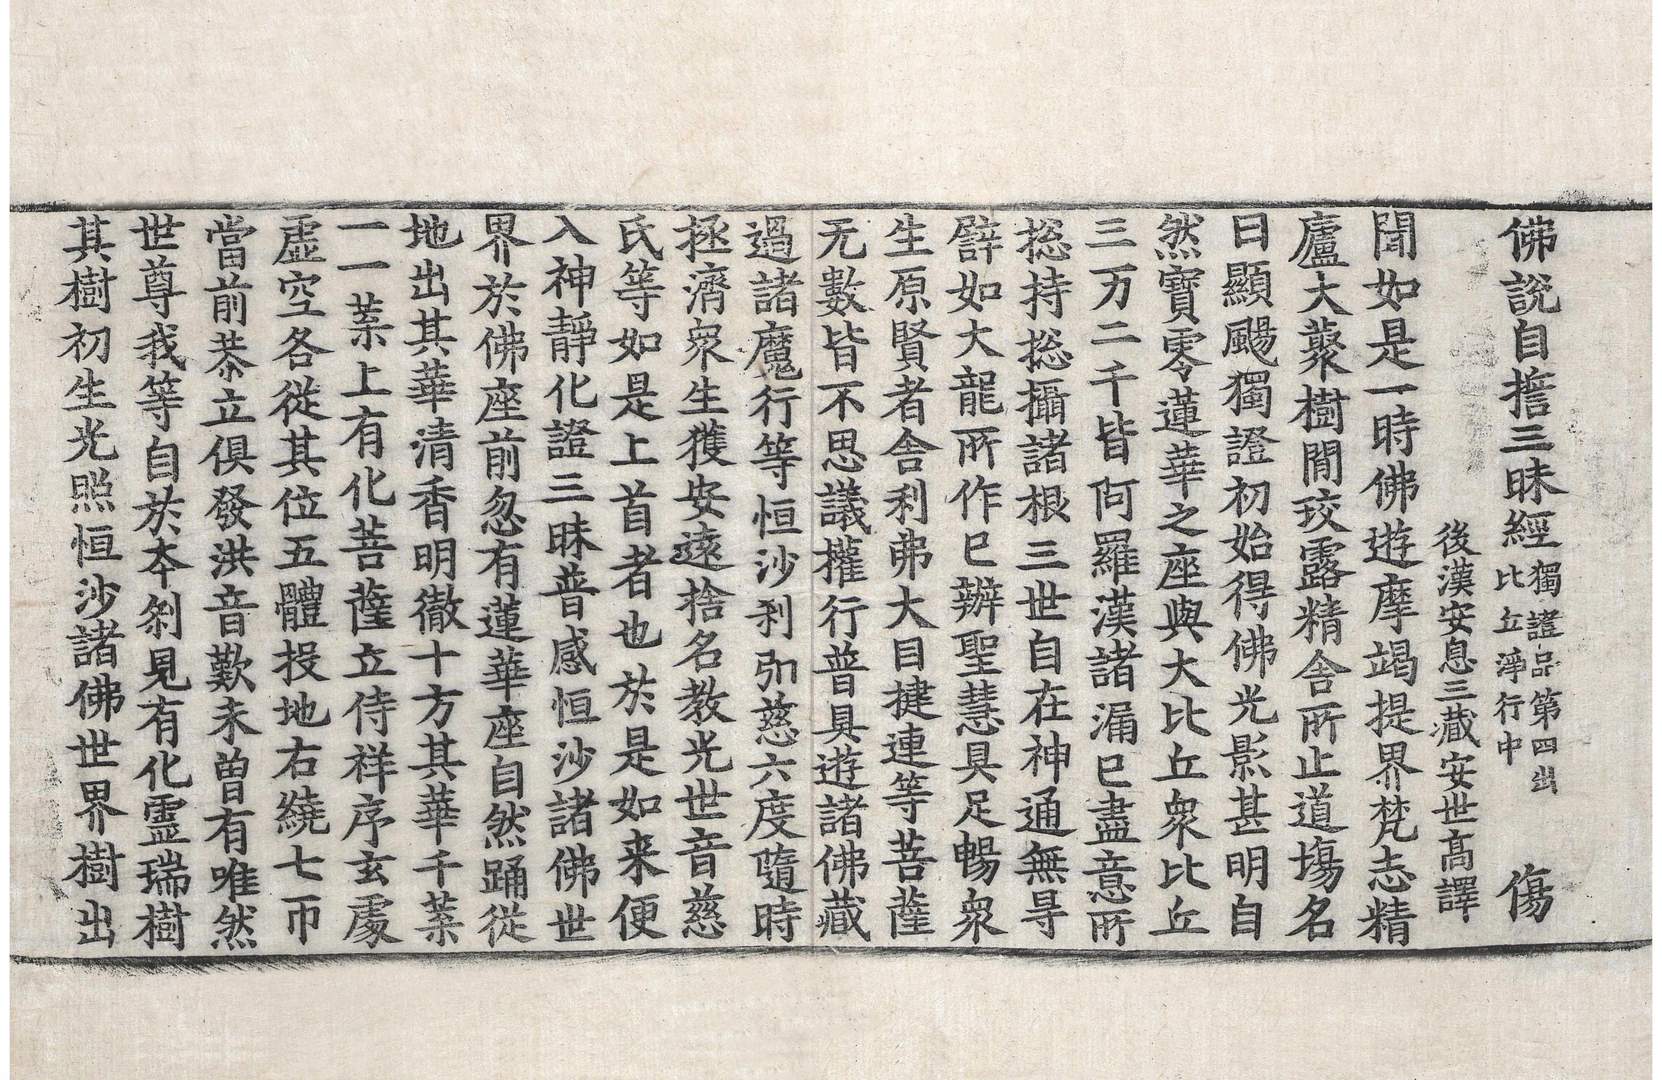 佛說自誓三昧經 獨證品第四出 比丘淨行中 傷
後漢安息三藏安世高譯
聞如是一時佛遊摩竭提界梵志精
廬大藂樹閒珓露精舍所止道塲名
曰顯颺獨證初始得佛光影甚明自
然寶零蓮華之座與大比丘衆比丘
三万二千皆阿羅漢諸漏已盡意所
捴持捴攝諸根三世自在神通無㝵
譬如大龍所作已辦聖慧具足暢衆
生原賢者舍利弗大目揵連等菩薩
无數皆不思議權行普具遊諸佛藏
過諸魔行等恒沙刹卽慈六度隨時
拯濟衆生獲安遠捨名教光世音慈
氏等如是上首者也於是如来便
入神靜化證三昧普感恒沙諸佛世
界於佛座前忽有蓮華座自然踊從
地出其華清香明徹十方其華千葉
一一葉上有化菩薩立侍祥序玄處
虛空各從其位五體投地右繞七帀
當前恭立俱發洪音歎未曾有唯然
世尊我等自於本刹見有化靈瑞樹
其樹初生光照恒沙諸佛世界樹出